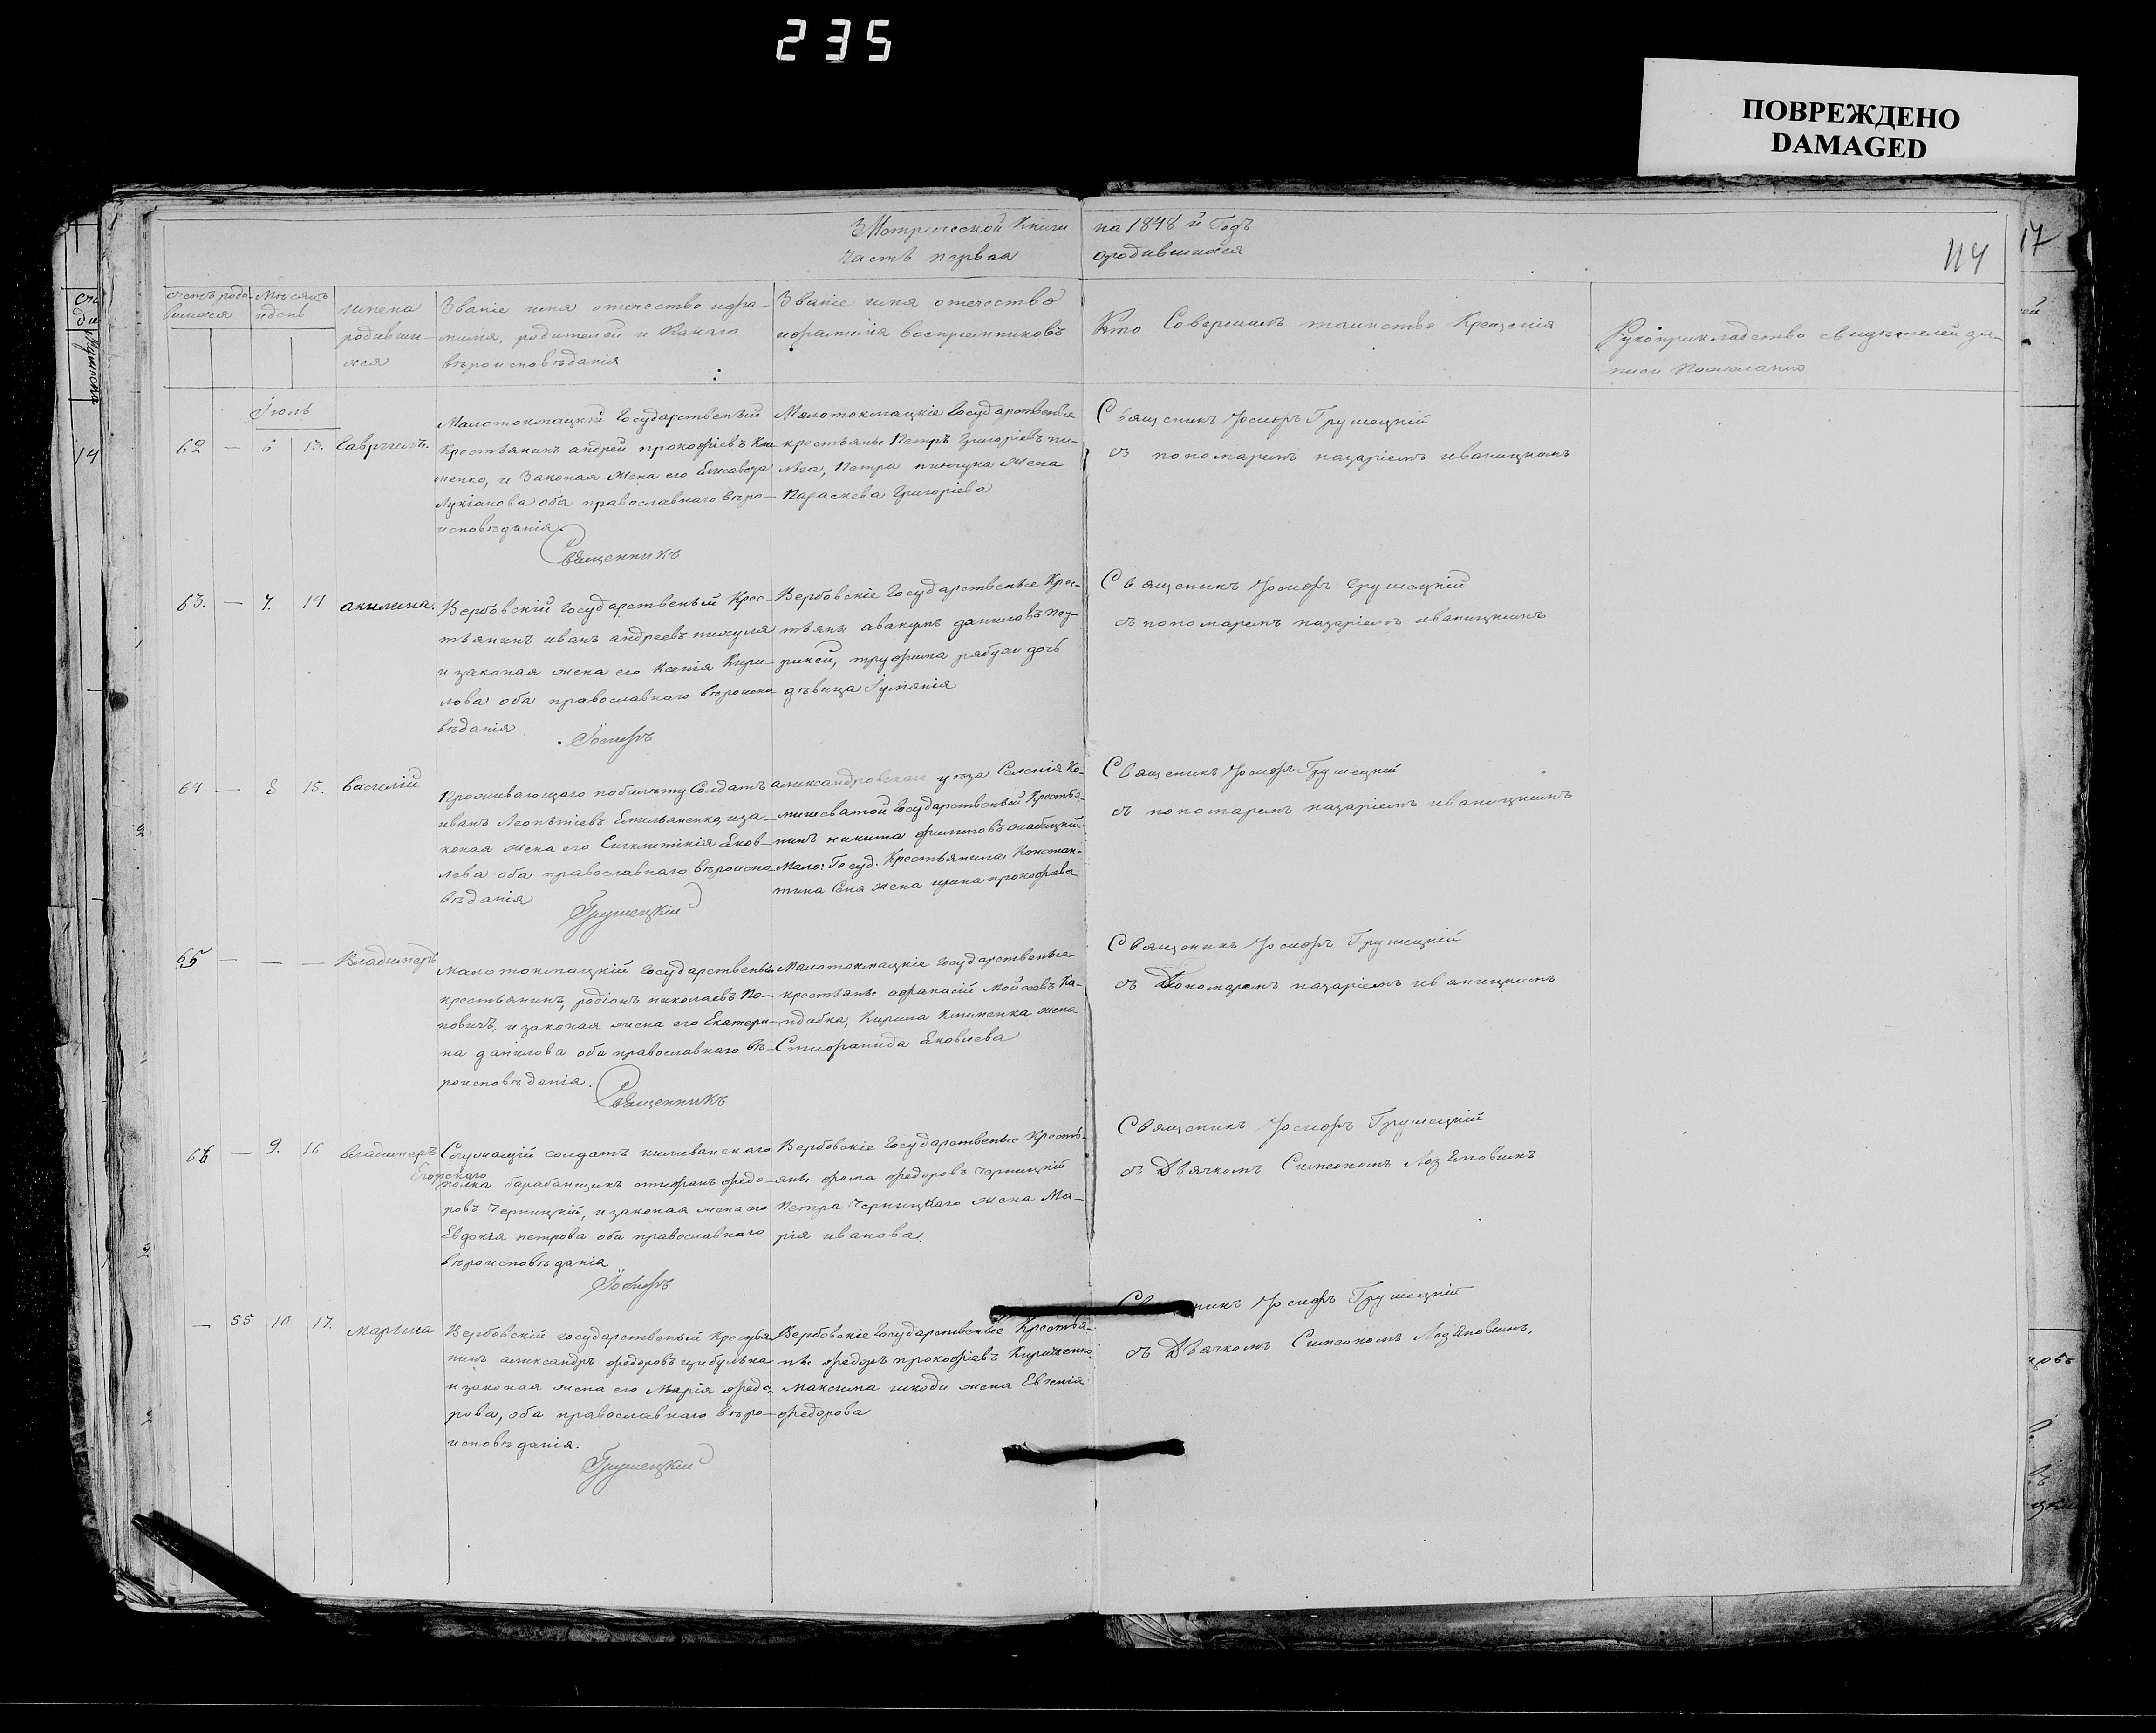 235
ПОВРЕЖДЕНО
DAMAGED
Метрической Книги на 1848 й Годъ
Часть первая ородившихся
114
17
счетъ роди-
вшихся
Мѣсяцъ
и день
имена
родивши-
хся
Званіе имя отечество ифа-
милія, родителей и Какаго
вѣроисповѣданія
Званіе имя отечество
ифамилія воспріемниковъ
Кто Совершалъ таинство Крещенія
Рукоприкладство свидѣтелей за-
писи Пожеланію
Іюль
62 — 6 13. Гавріилъ.
Малотокмацкій Государственый
Крестьянинъ андрей прокофіевъ Кли-
менко, и Законая Жена его Елисавета
Лукіанова оба православнаго вѣро-
исповѣданія.
Священникъ
Малотокмацкіе Государственые
крестьяне Петръ Григоріевъ
Петра жена
Параскева Григоріева
Священикъ Іосифъ Грушецкій
съ пономаремъ назаріемъ иваницкимъ
63. — 7. 14 акилина.
Вербовскій Государственый Крес-
тьянинъ иванъ андреевъ
и законая жена его Ксенія Кири-
лова оба православнаго вѣроиспо
вѣданія
Іосифъ
Вербовскіе Государственые Крес-
тьяне авакумъ даниловъ
трофима рябухи дочь
дѣвица
Священикъ Іосифъ Грушецкій
съ пономаремъ назаріемъ иваницкимъ
64 — 8 15. Василій
Проживающаго побилѣту Солдатъ
иванъ Леонтіевъ Емельяненко, иза-
коная жена его Синклитикія Яков-
лева оба православнаго вѣроиспо
вѣданія
Грушецкій
александровскаго уѣза Селенія Ка-
мишеватой Государственый Крестья-
нинъ никита филиповъ
Мало: Госуд. Крестьянина Констан-
тина жена ирина прокофіева
Священикъ Іосифъ Грушецкій
съ пономаремъ назаріемъ иваницкимъ
65 — — — Владимеръ
Малотокмацкій Государственый
крестьянинъ, родіонъ николаевъ По-
повичъ, и законая жена его Екатери-
на данилова оба православнаго вѣ-
роисповѣданія.
Священникъ
Малотокмацкіе Государственые
крестьяне афанасій Мойсеевъ Ка-
ндибка, Кирила Клименка жена
Стефанида Яковлева
Священикъ Іосифъ Грушецкій
съ Пономаремъ назаріемъ иваницкимъ
66 — 9. 16 Владимеръ
Служащій солдатъ
Егорскаго
полка барабанщикъ стефанъ федо-
ровъ Черницкій, и законая жена его
Евдокія петрова оба православнаго
вѣроисповѣданія
Іосифъ
Вербовскіе Государственые Кресть-
яне фома федоровъ Черницкій
Петра Черницкаго жена Ма-
рія иванова.
Священикъ Іосифъ Грушецкій
съ Дьячкомъ Симеономъ
— 55 10 17. Марина
Вербовскій государственый крестья
нинъ александръ федоровъ цибулька
и законая жена его Марія федо-
рова, оба православнаго вѣро-
исповѣданія.
Грушецкій
Вербовскіе Государственые Крестья-
не федоръ прокофіевъ
Максима жена Евгенія
федорова
Іосифъ Грушецкій
съ Дьячкомъ Симеономъ